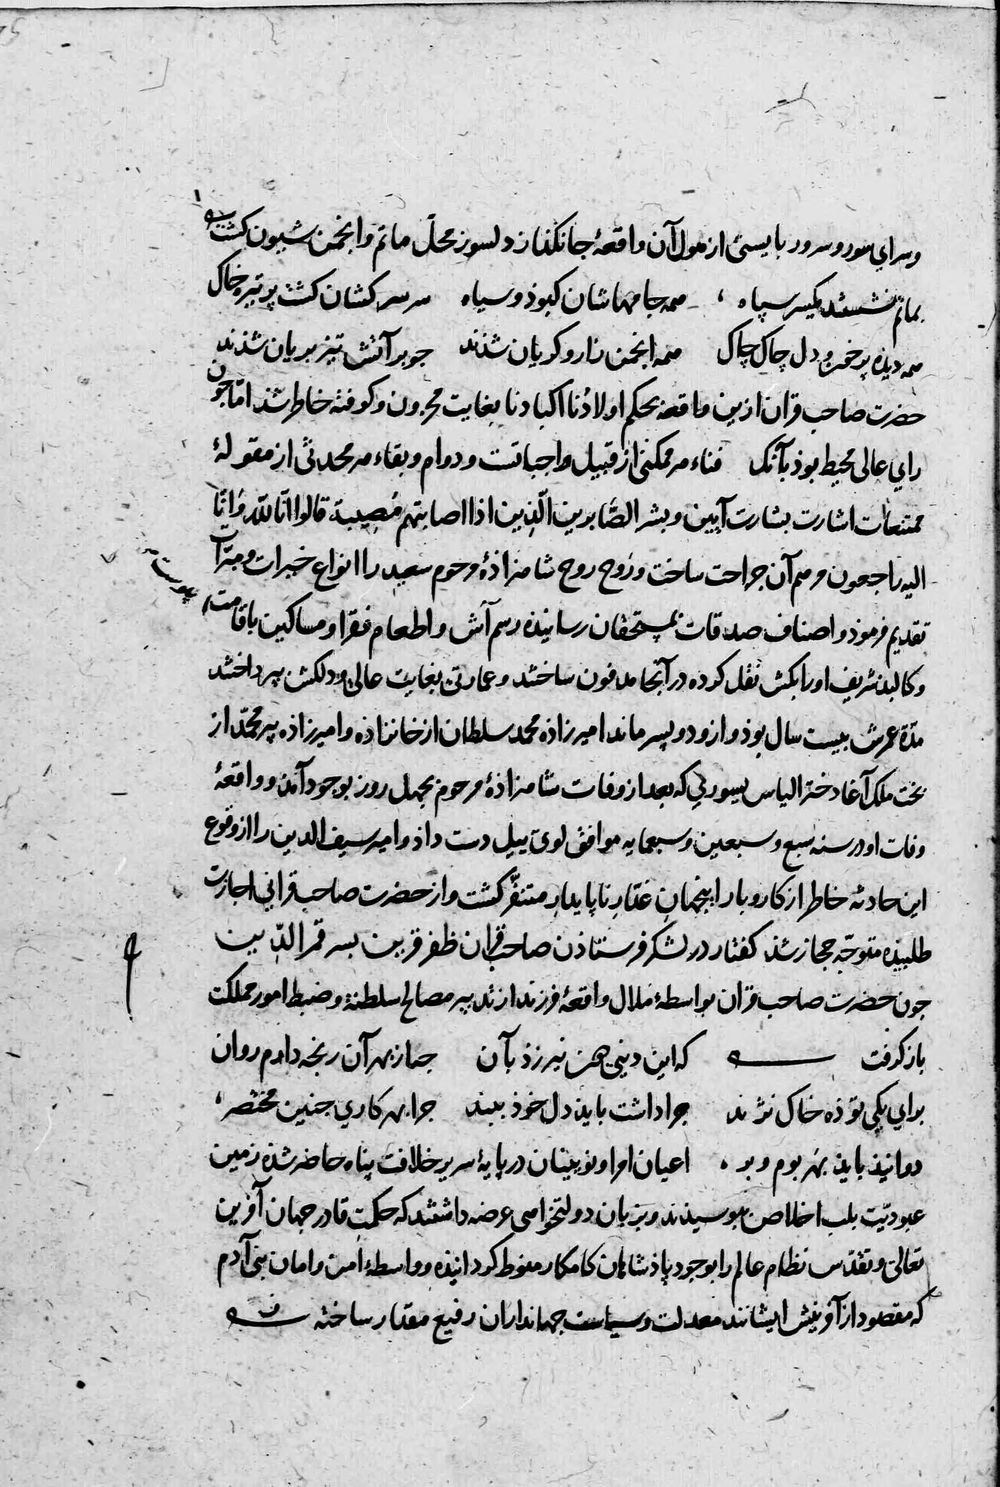 وسرای سور و سرور بایستی از هول آن واقعهٔ جانگداز دلسوز محلّ ماتم و انجمن شیون کشت
بماتم نشستند یکسر سپاه ، همه جامهاشان کبوذ و سیاه سر سرکشان کشت پر تیره خاک
همه دیذه پر خون و دل چاک چاک همه انجمن زار و کریان شذند جو بر آتش تیز بریان شذند
حضرت صاحب قران ازین واقعه بحکم اولادنا اکبادنا بغایت محزون و کوفته خاطر شذ امّا جون
رای عالی محیط بوذ بآنک فناء هر ممکنی از قبیل واجباتست و دوام و بقاء هر محدثی از مقولهٔ
ممتنعات اشارت بشارت آیین و بشر الصّابرین الّذین اذا اصابتهم مُصیبة قالوا انّا للّه وانّا
الیه راجعون مرهم آن جراحت ساخت و رَوح روح شاهزاذهٔ مرحوم سعید را انواع خیرات و مبرّات
تقدیم فرموذ و اصناف صدقات بمستحقان رسانیذه رسم آش و اطعام فقرا و مساکین باقامت پیوست
و کالبد شریف اورا بکش نقل کرده در آنجا مدفون ساختند و عمارتی بغایت عالی و دلکش بپرداختند
مدّة عمرش بیست سال بوذ و ازو دو پسر ماند امیرزاذه محمد سلطان از خانزاده و امیرزاده پیر محمّد از
بخت ملک آغا دختر الیاس یسوری که بعد از وفات شاهزاذهٔ مرحوم بچهل روز بوجود آمد و واقعهٔ
وفات او در سنه سبع و سبعین و سبعمایه موافق لوی ییل دست داذ و امیر سیف الدین را از وقوع
این حادثه خاطر از کار و بار اینجهان غدّار ناپایدار متنفّر کشت و از حضرت صاحب قرانی اجازت
طلبیذه متوجّه حجاز شذ کفتار در لشکر فرستاذن صاحب قران ظفر قرین بسر قمر الدّین
جون حضرت صاحب قران بواسطهٔ ملال واقعهٔ فرزند از تدبیر مصالح سلطنة و ضبط امور مملکت
باز کرفت که این دنیی نیرزذ بآن جه از بهر آن رنجه دارم روان
برای یکی توذه خاک نژند جرا داشت بایذ دل خوذ ببند جرا بهر کاری جنین مختصر ،
دوانیذ بایذ بهر بوم و بر ، اعیان امرا و نوینیان در پایهٔ سریر خلافت پناه حاضر شذه زمین
عبودیّت بلب اخلاص بوسیذند و بزبان دولتخواهی عرضه داشتند که حکمت قادر جهان آفرین
تعالی و تقدّس نظام عالم را بوجود پاذشاهان کامکار منوط کردانیذه و واسطهٔ امن و امان بنی آدم
که مقصود از آفرینش ایشانند معدلت و سیاست جهانداران رفیع مقدار ساخته